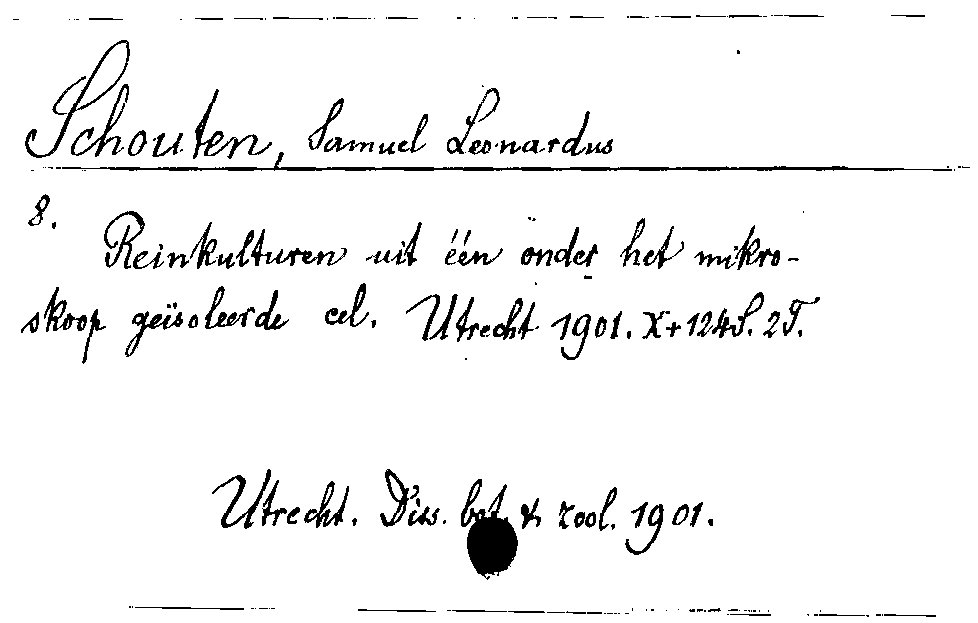 Schouten, Samuel Leonardus
8.
Reinkulturen uit één onder het mikro-
skoop geïsoleerde cel. Utrecht 1901. X+124S. 2T.
Utrecht. Diss. bot. & zool. 1901.